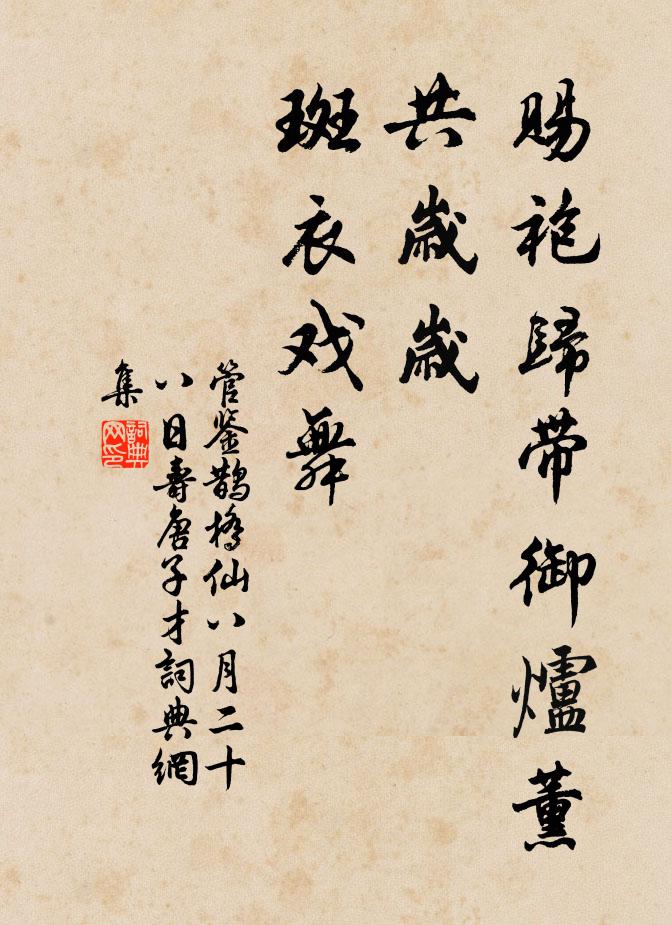 賜袍歸带御爐薰
共歲歲
斑衣戏舞
管鉴鵲橋仙八月二十
八日壽唐子才詞典網
集
詞典网印